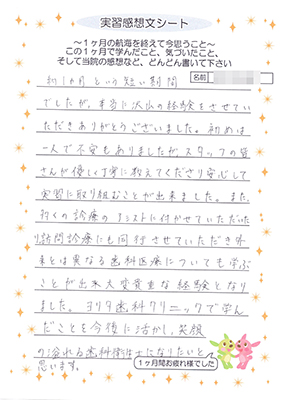 実習感想文シート
～1ヶ月の航海を終えて今思うこと～
この1ヶ月で学んだこと、気づいたこと、
そして当院の感想など、どんどん書いて下さい
名前
約1ヵ月という短い期間
でしたが、本当に沢山の経験をさせてい
ただきありがとうございました。初めは
一人で不安もありましたがスタッフの皆
さんが優しく丁寧に教えてくださり安心して
実習に取り組むことが出来ました。また、
沢山の診療のアシストに付かせていただいた
り訪問診療にも同行させていただき外
来とは異なる歯科医療についても学ぶ
ことが出来大変貴重な経験となり
ました。ヨリタ歯科クリニックで学ん
だことを今後に活かし、笑顔
の溢れる歯科衛生士になりたいと
思います。
1ヶ月間お疲れ様でした